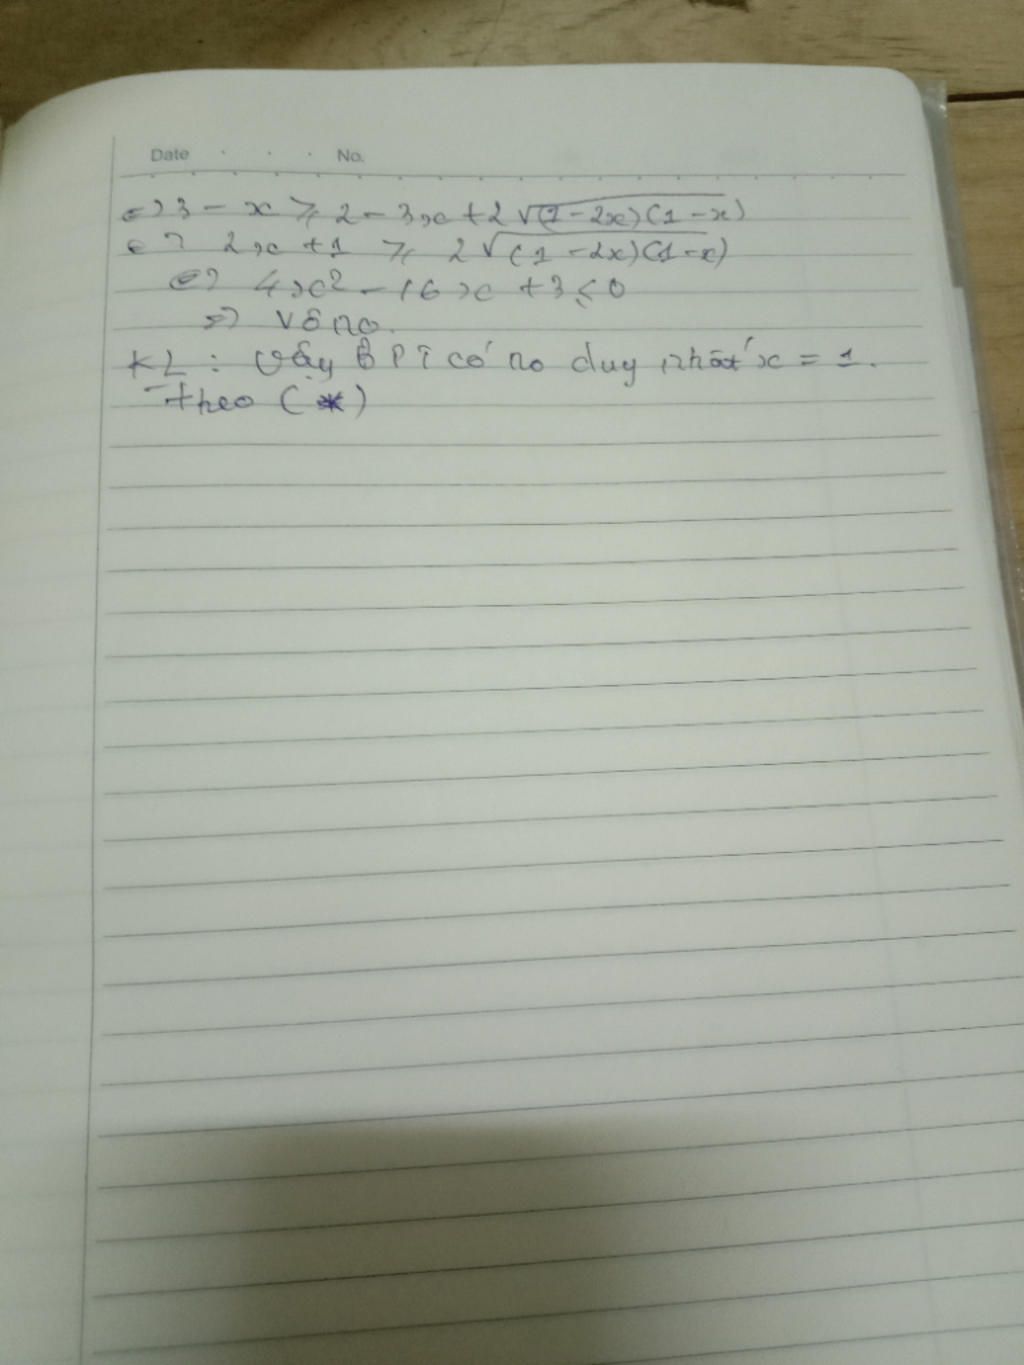 Date No.
<=> 3 - x ≥ 2 - 3x + 2√(1-2x)(1-x)
<=> 2x + 1 ≥ 2√(1-2x)(1-x)
<=> 4x² - 16x + 3 ≤ 0
=> Vô no.
KL : Vậy BPT có no duy nhất x = 1.
Theo (*)